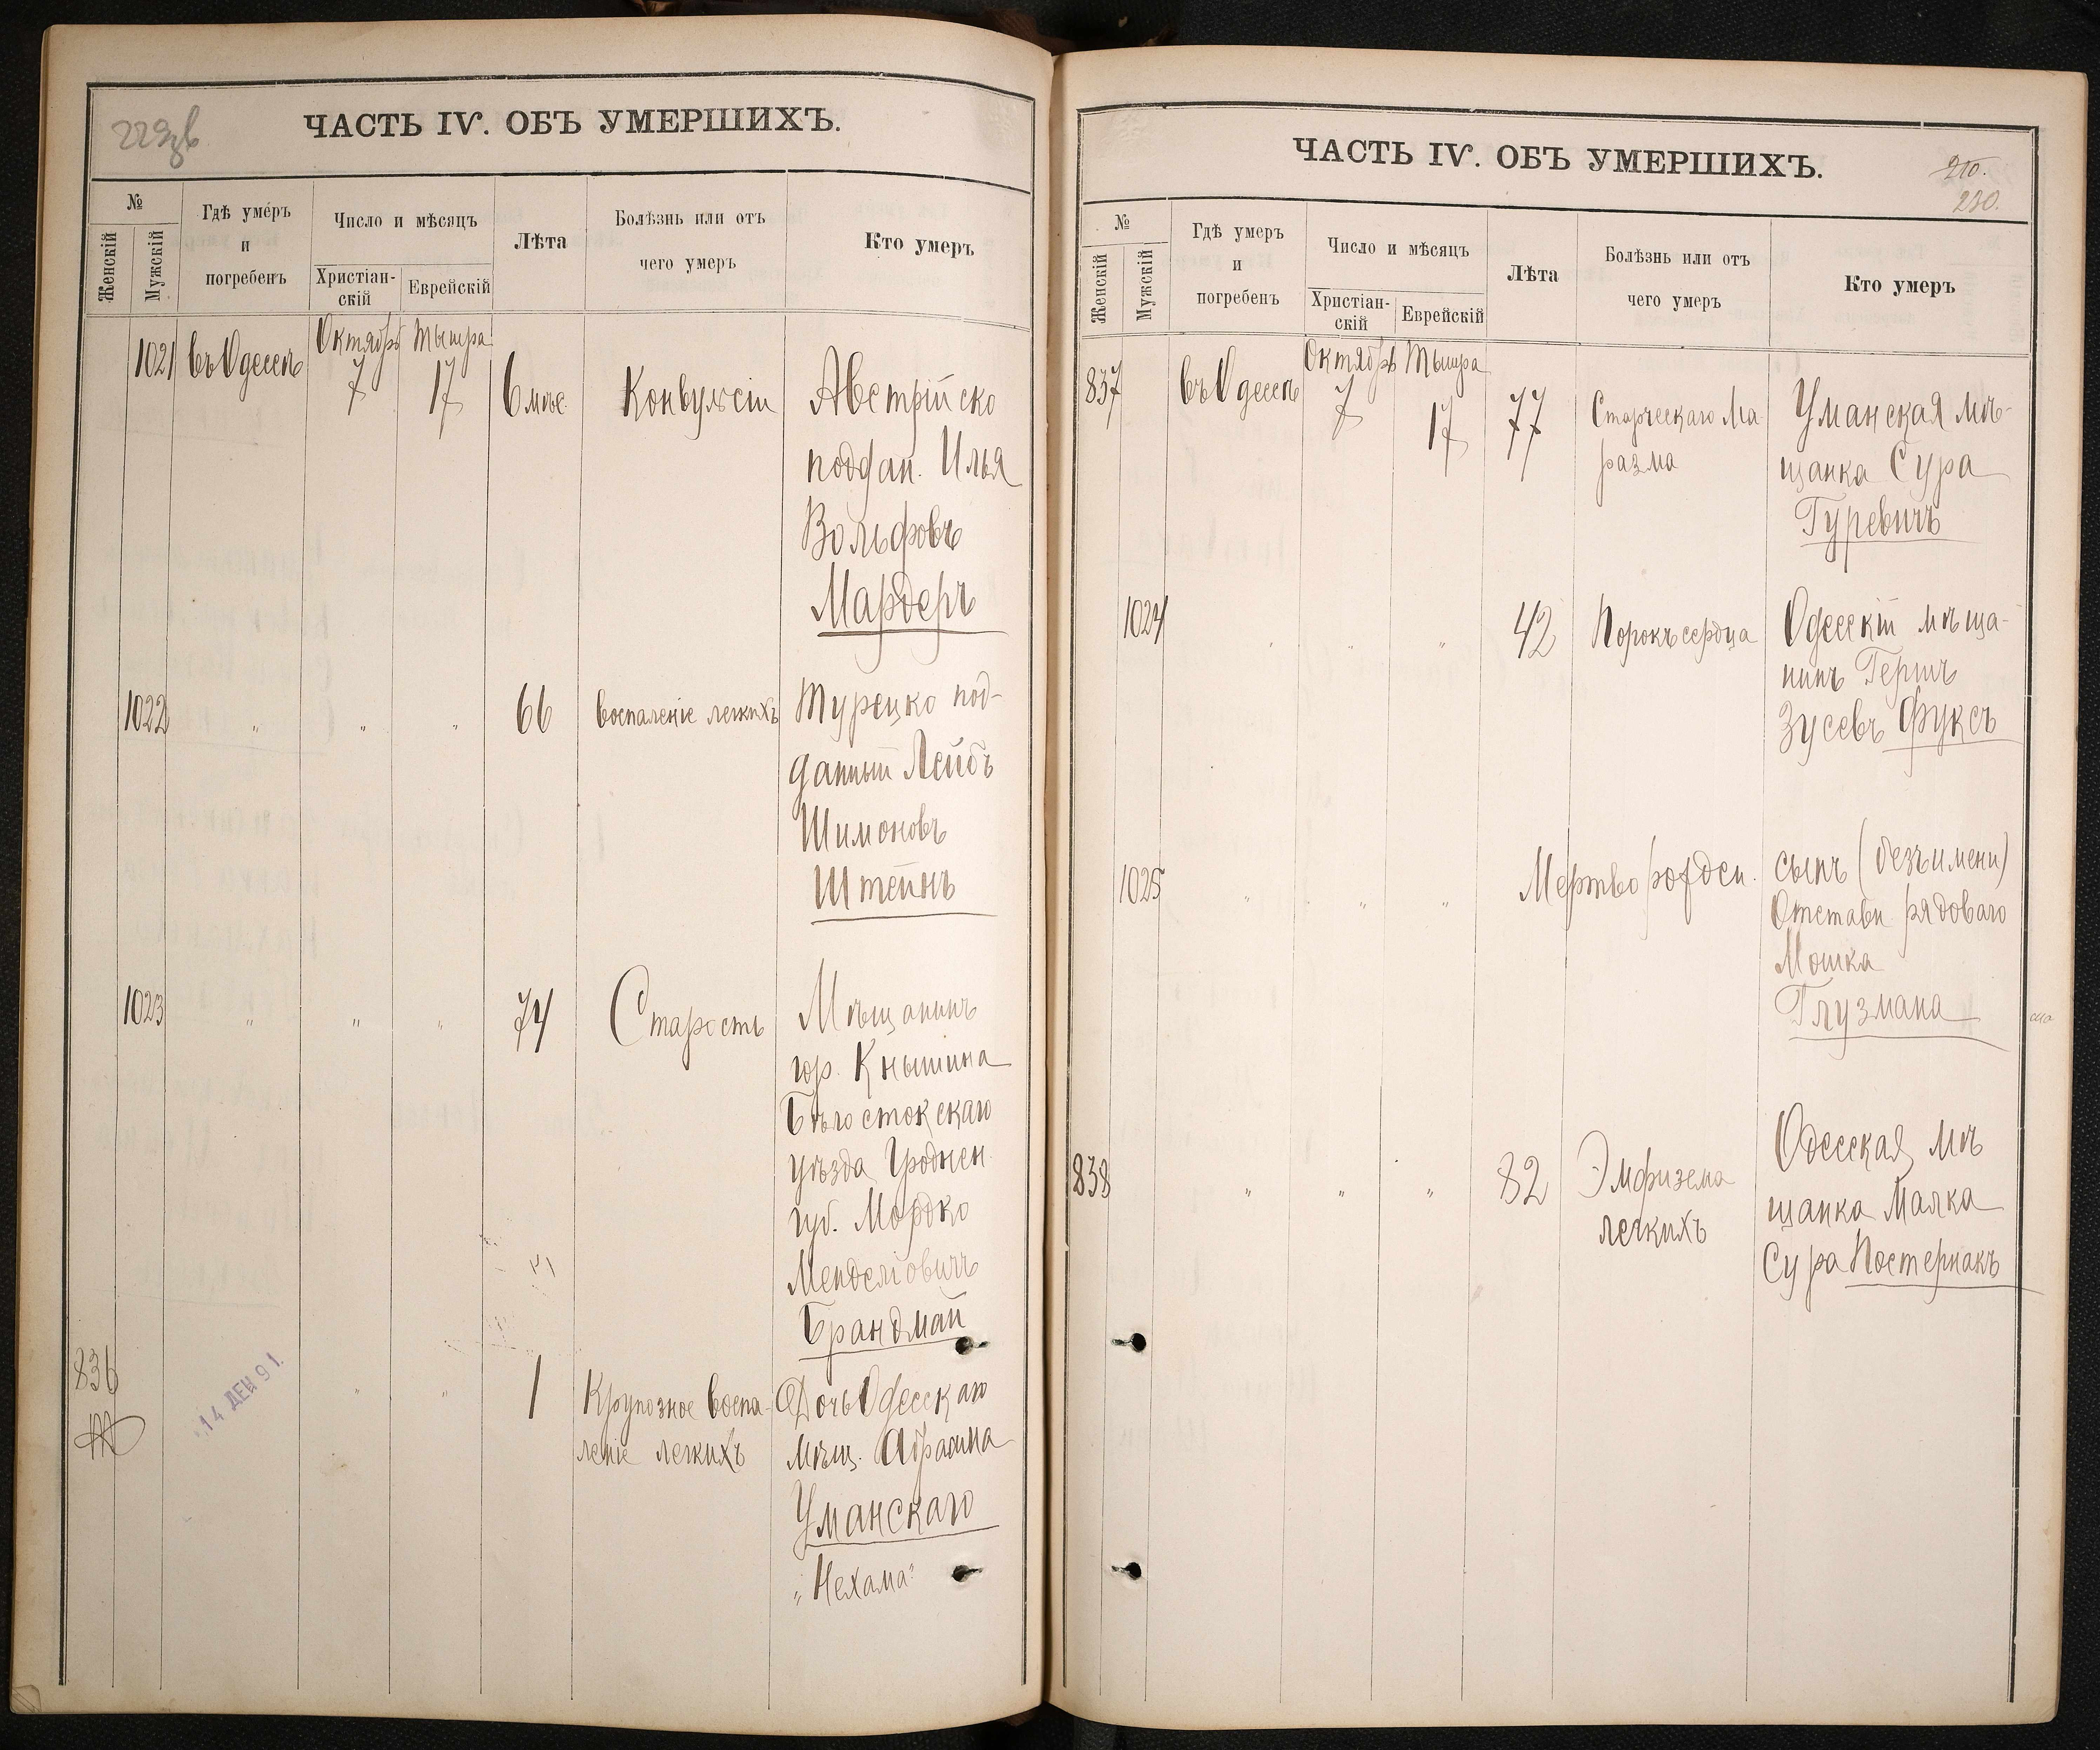 229об
ЧАСТЬ IV. ОБЪ УМЕРШИХЪ.
№
Женскій
Мужскій
Гдѣ умеръ
и
погребенъ
Число и мѣсяцъ
Христіан-
скій
Еврейскій
Лѣта
Болѣзнь или отъ
чего умеръ
Кто умеръ
1021 въ Одессѣ Октябрь 7 Тышра 17 6 мѣс. Конвульсіи Австрійско
поддан. Илья
Вольфовъ
Мардеръ
1022 " " " 66 воспаленіе легкихъ Турецко под-
данный Лейбъ
Шимоновъ
Штейнъ
1023 " " " 74 Старость Мѣщанинъ
гор. Кнышина
Бѣлостокскаго
уѣзда Гроднен.
губ. Мордко
Менделіовичъ
Брандман
836 14 ДЕК 91. " " 1 Крупозное воспа- Дочь Одесскаго
леніе легкихъ мѣщ. Абрама
Уманскаго
"Нехама"
ЧАСТЬ IV. ОБЪ УМЕРШИХЪ.
210.
230.
№
Женскій
Мужскій
Гдѣ умеръ
и
погребенъ
Число и мѣсяцъ
Христіан-
скій
Еврейскій
Лѣта
Болѣзнь или отъ
чего умеръ
Кто умеръ
837 въ Одессѣ Октябрь 7 Тышра 17 77 Старческаго Ма- Уманская мѣ-
разма щанка Сура
Гуревичъ
1024 " " " 42 Порокъ сердца Одесскій мѣща-
нинъ Гершъ
Зусевъ Фуксъ
1025 " " " Мертворожден. сынъ (безъ имени)
Отставн. рядоваго
Мошка
Глузмана
838 " " " 82 Эмфизема Одесская мѣ
легкихъ щанка Малка
Сура Постернакъ